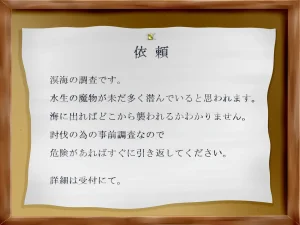 依頼
溟海の調査です。
水生の魔物が未だ多く潜んでいると思われます。
海に出ればどこから襲われるかわかりません。
討伐の為の事前調査なので
危険があればすぐに引き返してください。
詳細は受付にて。